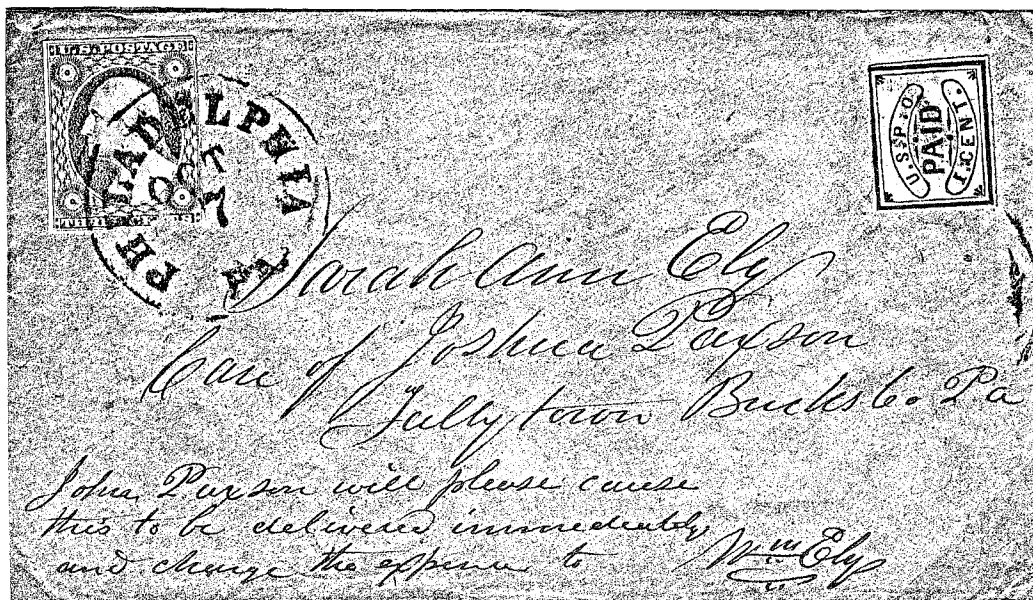 U.S. POSTAGE
THREE CENTS
PHILADELPHIA
OCT
7
PA
U.S.P.O.
PAID
1.CENT.
Sarah Ann Ely
Care of Joshua Paxson
Tullytown Bucks Co. Pa
John Paxson will please cause
this to be delivered immediately
and charge the expense to Wm Ely